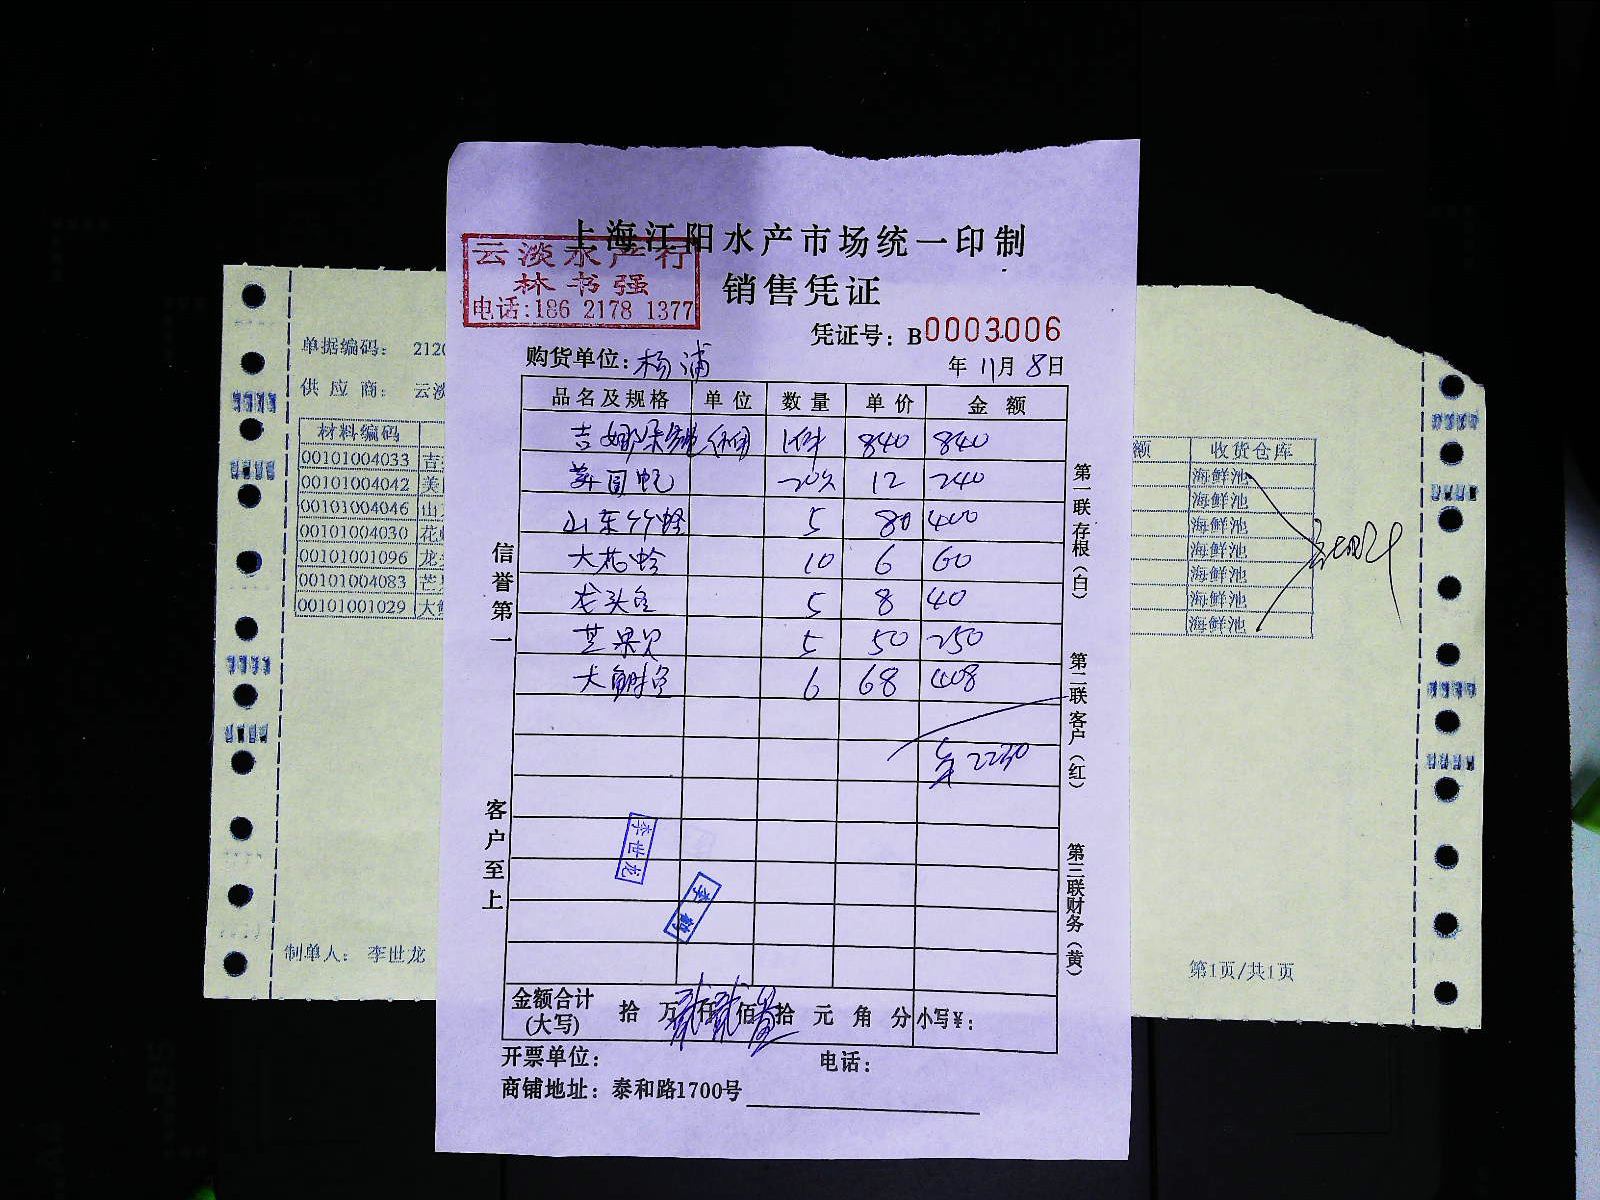 上海江阳水产市场统一印制
云淡水产行
林书强
电话:186 2178 1377
销售凭证
凭证号: B0003006
购货单位: 杨浦 年 11月 8日
品名及规格 单位 数量 单价 金额
吉娜朵 1件 840 840
美国 20 12 240
山东竹蛏 5 80 400
大花蛤 10 6 60
龙头鱼 5 8 40
芒果贝 5 50 250
大鲥鱼 6 68 408
2230
信誉第一
客户至上
第一联存根(白)
第二联客户(红)
第三联财务(黄)
李世龙
金额合计(大写) 拾 万贰仟贰佰叁拾 元 角 分 小写¥:
开票单位: 电话:
商铺地址: 泰和路1700号
单据编码: 2120
供应商: 云淡
材料编码
00101004033 吉
00101004042 美
00101004046 山
00101004030 花
00101001096 龙
00101004083 芒
00101001029 大
额 收货仓库
海鲜池
海鲜池
海鲜池
海鲜池
海鲜池
海鲜池
海鲜池
制单人: 李世龙
第1页/共1页